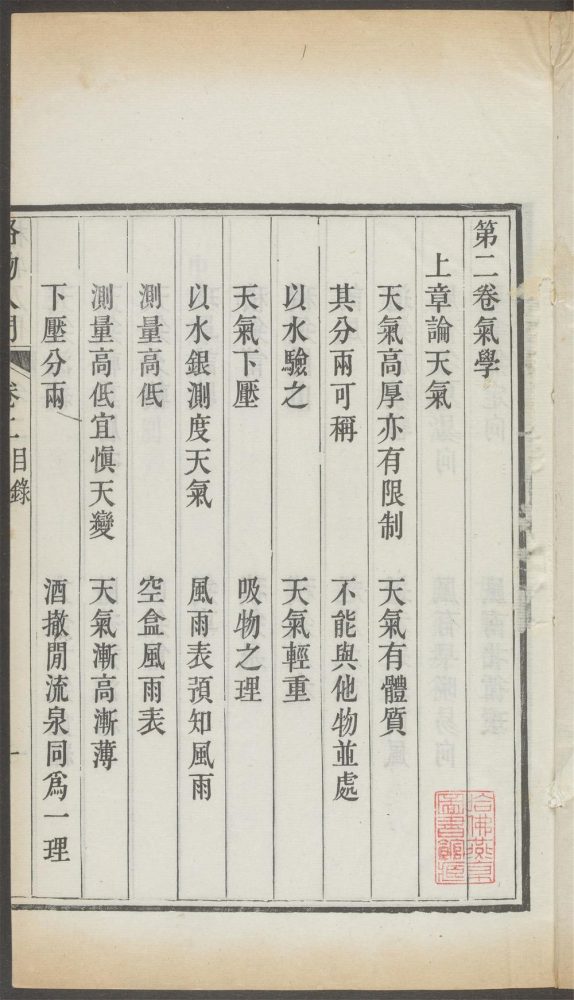 第二卷氣學
上章論天氣
天氣高厚亦有限制 天氣有體質
其分兩可稱 不能與他物並處
以水驗之 天氣輕重
天氣下壓 吸物之理
以水銀測度天氣 風雨表預知風雨
測量高低 空盒風雨表
測量高低宜慎天變 天氣漸高漸薄
下壓分兩 酒撤閒流泉同爲一理
格物入門 卷二目錄 一
哈佛燕京圖書館